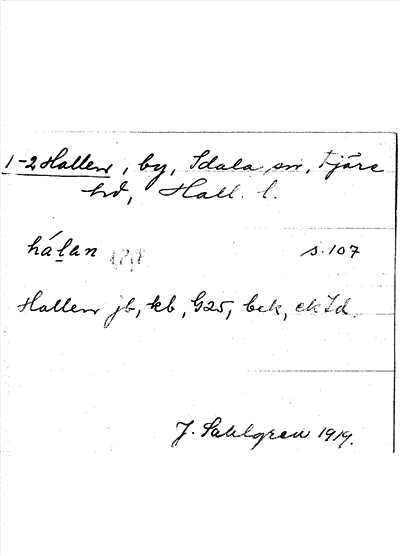 1-2 Hallen, by, Idala sn, Fjäre
hd, Hall. l.
hálan s. 107
Hallen jb, kb, G25, bek, ek Id.
J. Sahlgren 1919.